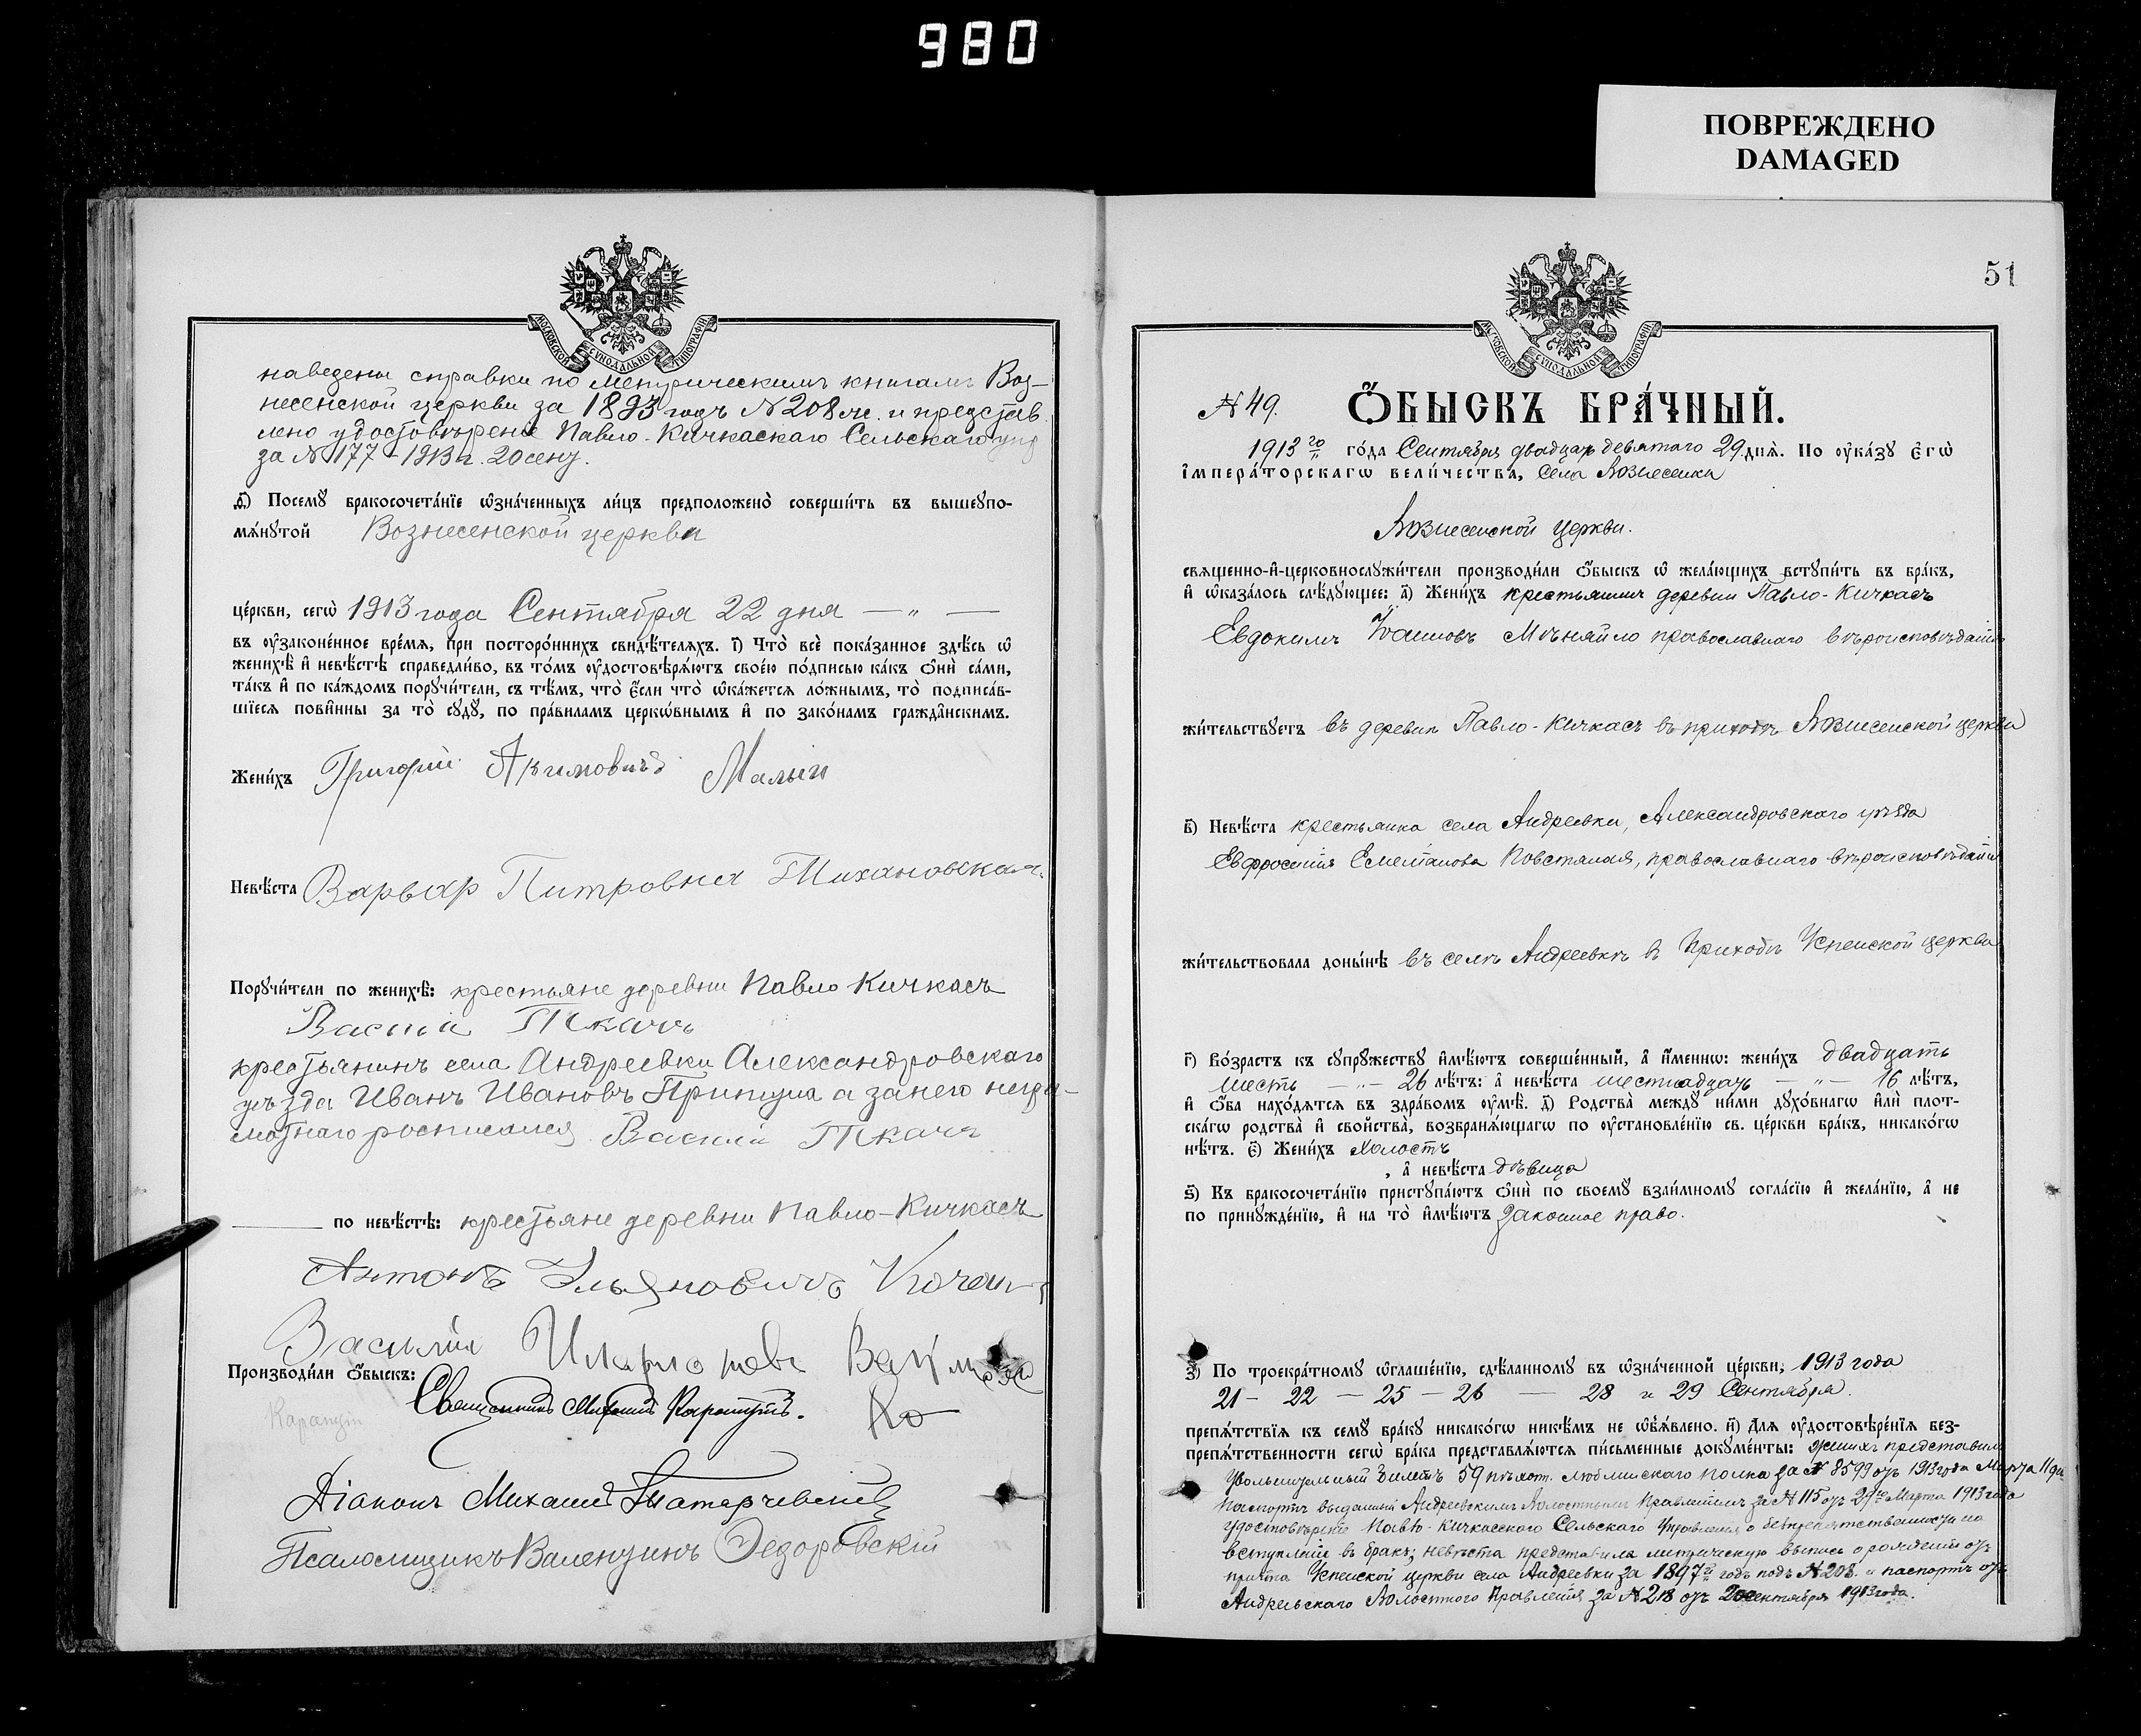 980
ПОВРЕЖДЕНО
DAMAGED
МОСКОВСКОЙ СѴНОДАЛЬНОЙ ТИПОГРАФІИ
наведены справки по метрическимъ книгамъ Воз-
несенской церкви за 1893 годъ № 208 и представ
лено удостовѣрене Павло-Кичкаскаго Сельскаго
за № 177 - 1913 г. 20 сент.
Посемꙋ бракосочета́нїе ѡ҆зна́ченныхъ ли́цъ предположено̀ соверши́ть въ вышеꙋпо-
мѧ́нꙋтой Вознесенской церкви
це́ркви, сегѡ̀ 1913 года Сентября 22 дня — „ —
въ ᲂу҆зако́ненное вре́мѧ, при посторо́ннихъ свидѣ́телѧхъ. і҃) Что̀ всѐ пока́занное здѣ́сь ѡ҆
женихѣ̀ и҆ невѣ́стѣ справедли́во, въ то́мъ ᲂу҆достовѣрѧ́ютъ свое́ю по́дписью ка́къ ѻ҆нѝ са́ми,
та́къ и҆ по ка́ждомъ порꙋчи́тели, съ тѣ́мъ, что̀ є҆́сли что̀ ѡ҆ка́жетсѧ ло́жнымъ, то̀ подписа́в-
шїесѧ пови́нны за то̀ сꙋдꙋ̀, по пра́виламъ церко́внымъ и҆ по зако́намъ гражда́нскимъ.
Жени́хъ Григорій Акимовичъ Малый
Невѣ́ста Варвар Питровна Тихановская
Порꙋчи́тели по женихѣ̀: крестьяне деревни Павло Кичкасъ
Василій Ткачъ
крестьянинъ села Андреевки Александровскаго
уѣзда Иванъ Ивановъ Притула а за него негра-
мотнаго росписался Василій Ткачъ
по невѣ́стѣ: крестьяне деревни Павло-Кичкасъ
Антонъ Ульяновичъ
Василій
Производи́ли ѻ҆́быскъ: Священникъ Михаилъ Карапутъ.
ко
Діаконъ Михаилъ Татарчевскій
Псаломщикъ Валентинъ Федоровскій
51
МОСКОВСКОЙ СѴНОДАЛЬНОЙ ТИПОГРАФІИ
№ 49. Ѻ҆́БЫСКЪ БРА́ЧНЫЙ.
1913 го го́да Сентября двадцать девятаго 29 днѧ̀. По ᲂу҆ка́зꙋ Є҆гѡ̀
І҆мпера́торскагѡ вели́чества, села Вознесенка
Вознесенской церкви.
свѧще́нно-и҆-церковнослꙋжи́тели производи́ли ѻ҆́быскъ ѡ҆ жела́ющихъ встꙋпи́ть въ бра́къ,
и҆ ѡ҆каза́лось слѣ́дꙋющее: а҃) Жени́хъ крестьянинъ деревни Павло-Кичкасъ
Евдокимъ Іоанновъ Мѣняйло православнаго вѣроисповѣданія
жи́тельствꙋетъ въ деревни Павло-Кичкасъ въ приходѣ Вознесенской церкви
в҃) Невѣ́ста крестьянка села Андреевки, Александровскаго уѣзда
Евфросинія Емеліанова Повстяная, православнаго вѣроисповѣданія
жи́тельствовала доны́нѣ въ селѣ Андреевкѣ въ приходѣ Успенской церкви
г҃) Во́зрастъ къ сꙋпрꙋ́жествꙋ и҆мѣ́ютъ соверше́нный, а҆ и҆́меннѡ: жени́хъ двадцать
шесть — „ — 26 лѣ́тъ: а҆ невѣ́ста шестнадцать — „ — 16 лѣ́тъ,
и҆ ѻ҆́ба нахо́дѧтсѧ въ здра́вомъ ᲂу҆мѣ̀. д҃) Родства̀ междꙋ̀ ни́ми дꙋхо́внагѡ и҆лѝ плот-
ска́гѡ родства̀ и҆ сво́йства, возбранѧ́ющагѡ по ᲂу҆становле́нїю св. це́ркви бра́къ, никако́гѡ
нѣ́тъ. є҃) Жени́хъ холостъ
, а҆ невѣ́ста дѣвица
ѕ҃) Къ бракосочета́нїю пристꙋпа́ютъ ѻ҆нѝ по своемꙋ̀ взаи́мномꙋ согла́сїю и҆ жела́нїю, а҆ не
по принꙋжде́нїю, и҆ на то̀ и҆мѣ́ютъ законное право.
з҃) По троекра́тномꙋ ѡ҆глаше́нїю, сдѣ́ланномꙋ въ ѡ҆зна́ченной це́ркви, 1913 года
21 — 22 — 25 — 26 — 28 и 29 Сентября.
препѧ́тствїѧ къ семꙋ̀ бра́кꙋ никако́гѡ никѣ́мъ не ѡ҆б̾ѧ́влено. и҃) Длѧ ᲂу҆достовѣре́нїѧ без-
препѧ́тственности сегѡ̀ бра́ка представлѧ́ютсѧ пи́сьменные докꙋме́нты: женихъ представилъ
увольнительный билетъ 59 пѣхот. Люблинскаго полка за № 8599 отъ 1913 года Марта 11 дн
паспортъ выданный Андреевскимъ Волостнымъ Правленіемъ за № 115 отъ 29го Марта 1913 года
удостовѣреніе Павло-Кичкасскаго Сельскаго Управленія о безпрепятственности на
вступленіе въ бракъ; невѣста представила метрическую выпись о рожденіи отъ
причта Успенской церкви села Андреевки за 1897й годъ подъ № 208. и паспортъ отъ
Андреевскаго Волостного Правленія за № 218 отъ 20 сентября 1913 года.